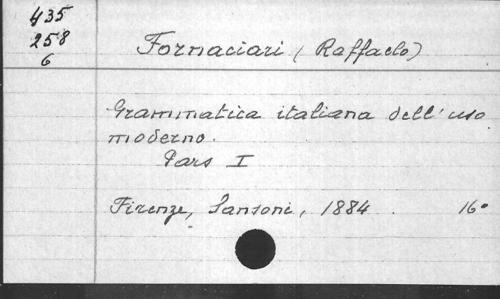 435
258
6
Fornaciari (Raffaelo)
Grammatica italiana dell' uso
moderno.
Pars I
Firenze, Sansoni, 1884. 16°